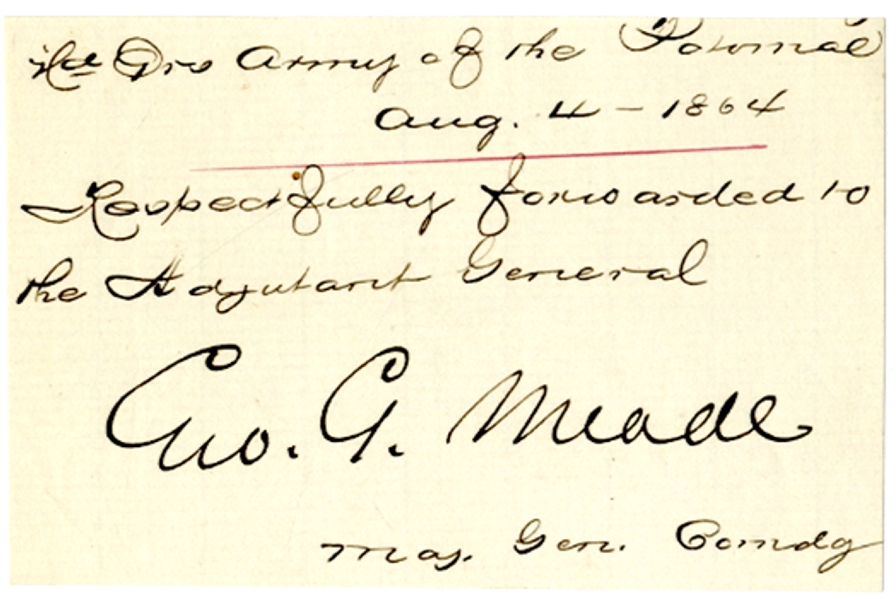 Hd Qrs Army of the Potomac
Aug. 4 - 1864
Respectfully forwarded to
the Adjutant General
Geo. G. Meade
Maj. Gen. Comdg